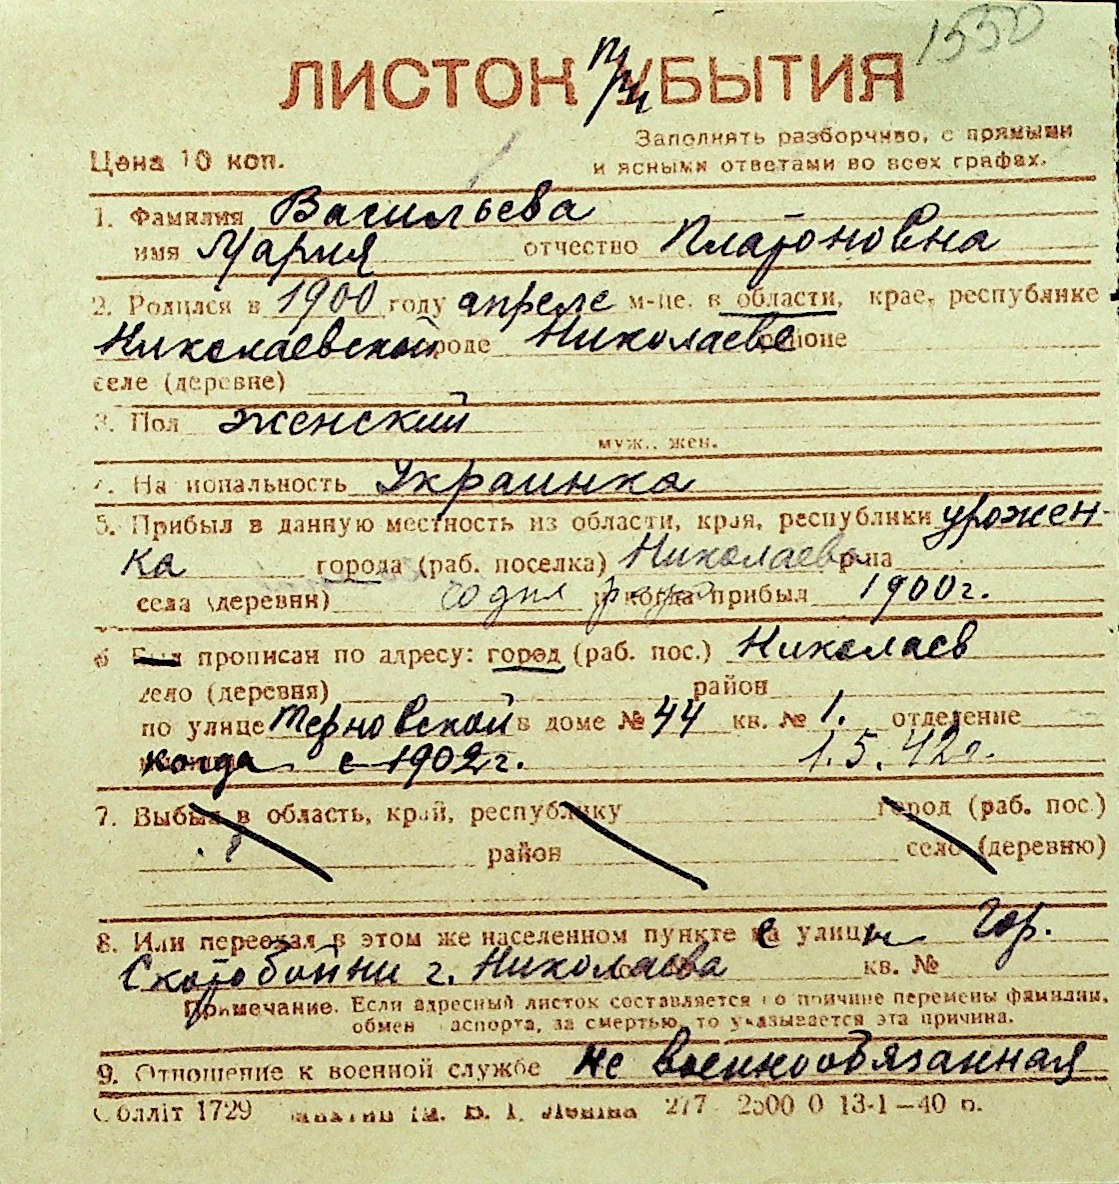 1550
ЛИСТОК при УБЫТИЯ
Заполнять разборчиво, с прямыми
Цена 10 коп.
и ясными ответами во всех графах.
1. Фамилия Васильева
имя Мария отчество Платоновна
2. Родился в 1900 году апреле м-це. в области, крае, республике
Николаевской городе Николаеве районе
селе (деревне)
3. Пол женский
муж., жен.
4. Национальность Украинка
5. Прибыл в данную местность из области, края, республики урожен-
ка города (раб. поселка) Николаева рна
села (деревни) и когда прибыл 1900 г.
6 Был прописан по адресу: город (раб. пос.) Николаев
село (деревня) район
по улице Терновской в доме № 44 кв. № 1. отделение
когда с 1902 г. 1.5.42 г.
7. Выбыл в область, край, республику город (раб. пос.)
район село (деревню)
8. Или переехал в этом же населенном пункте с улицы Гор.
Скотобойни г. Николаева кв. №
Примечание. Если адресный листок составляется по причине перемены фамилии,
обмен паспорта, за смертью, то указывается эта причина.
9. Отношение к военной службе не военнообязанная
Облліт 1729 ім. В. І. Леніна 277 2500 0 13-1—40 п.